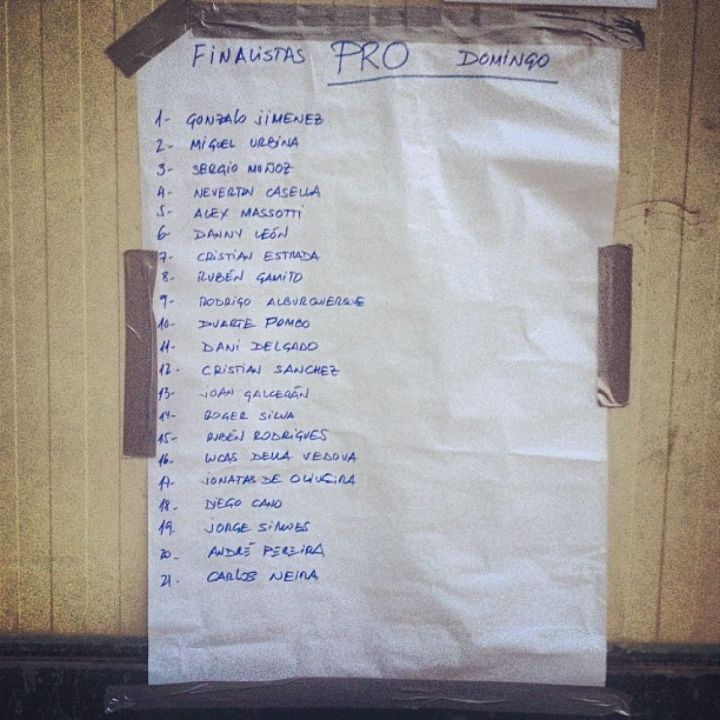 FINALISTAS PRO DOMINGO
1- GONZALO JIMENEZ
2- MIGUEL URBINA
3- SERGIO MUÑOZ
4- NEVERTON CASELLA
5- ALEX MASSOTTI
6- DANNY LEÓN
7- CRISTIAN ESTRADA
8- RUBÉN GAMITO
9- RODRIGO ALBURQUERQUE
10- DUARTE POMBO
11- DANI DELGADO
12- CRISTIAN SANCHEZ
13- JOAN GALCERÁN
14- ROGER SILVA
15- RUBÉN RODRIGUES
16- LUCAS DELLA VEDOVA
17- JONATAS DE OLIVEIRA
18- DIEGO CANO
19- JORGE SIMOES
20- ANDRÉ PEREIRA
21- CARLOS NEIRA